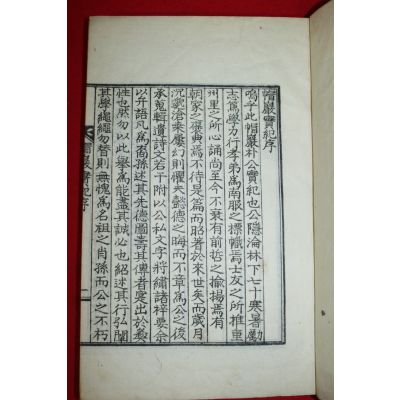 帽巖實紀序
嗚乎此帽巖朴公實紀也公隱淪林下七十寒暑勵
志爲學力行孝弟爲南服之標幟焉士友之所推重
州里之所心誦尚至今不衰有前哲之揄揚焉有
朝家之褒典焉不待是篇而昭著於來世矣而歲月
沉寢滄桒屢幻則懼夫懿德之晦而不章爲公之後
承蒐輯遺詩文若干附以公私文字將繡諸梓要余
以弁語凡爲裔孫述其先德圖壽其傳者寔出於彜
性也然勿以此擧爲能盡其誠必也紹述其行弘闡
其學繩繩勿替則無愧爲名祖之肖孫而公之不朽
帽巖實紀序
一